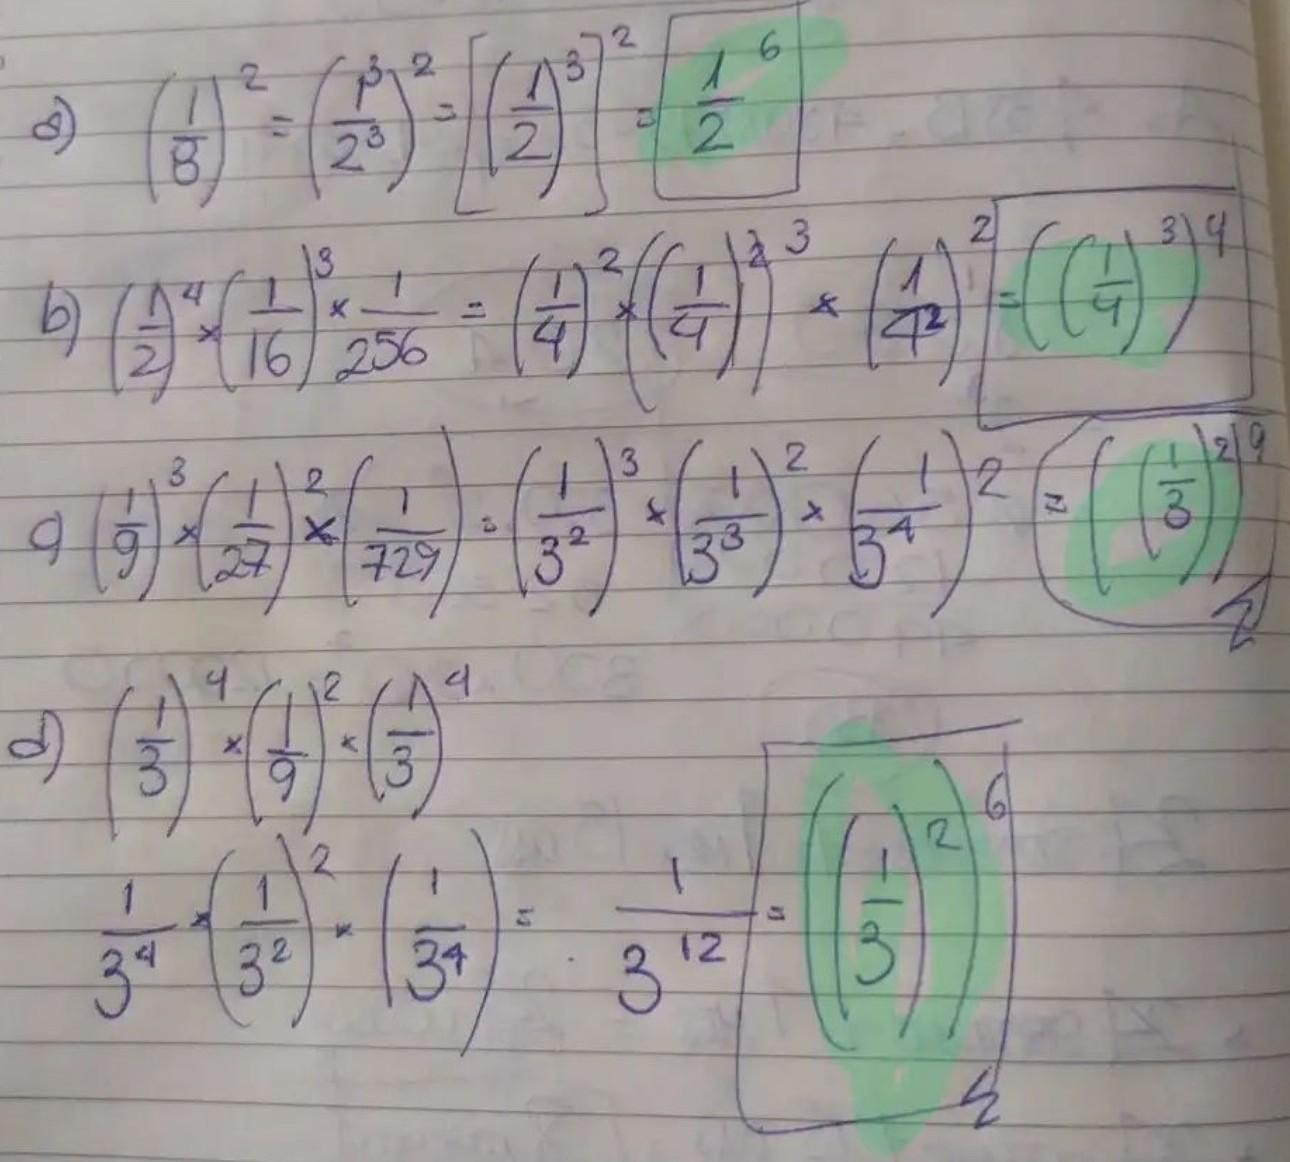 a) (1/8)^2 = (1^3/2^3)^2 = [(1/2)^3]^2 = 1/2^6
b) (1/2)^4 × (1/16)^3 × 1/256 = (1/4)^2 × ((1/4)^2)^3 × (1/4^2)^2 = ((1/4)^3)^4
c) (1/9)^3 × (1/27)^2 × (1/729) = (1/3^2)^3 × (1/3^3)^2 × (1/3^4)^2 = ((1/3)^2)^9
d) (1/3)^4 × (1/9)^2 × (1/3)^4
1/3^4 × (1/3^2)^2 × (1/3^4) = 1/3^12 = ((1/3)^2)^6